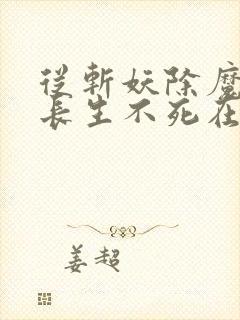 從斬妖除魔
長生不死在
姜超